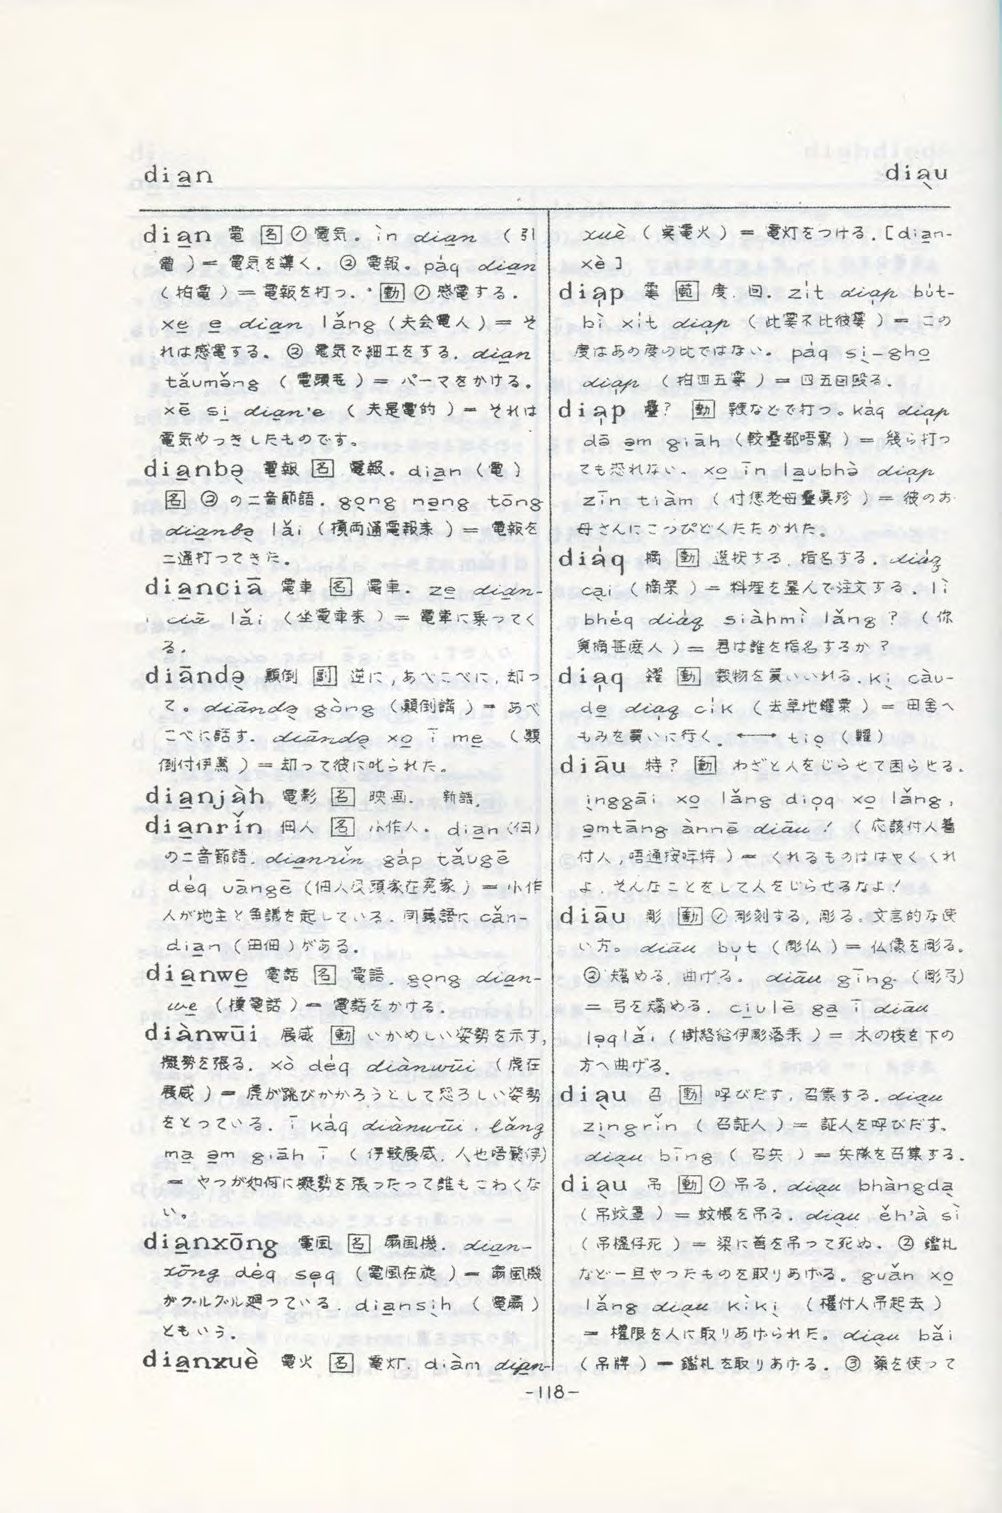 dia̱n
dia̱̖u
dia̱n 電 [名] ① 電気。ìn dia̱n (引
電)= 電気を導く. ② 電報。páq dia̱n
(拍電)= 電報を打つ. [動] ① 感電する.
xe̱ e̱ dia̱n lǎng (夫会電人)= そ
れは感電する。② 電気で細工をする. dia̱n
tǎumǒng (電頭毛)= パーマをかける。
xē si̱ dia̱n'e (夫是電的)= それは
電気やつきしたものです。
dia̱nbə̱ 電報 [名] 電報。dia̱n (電)
[名] ② の二音節語. go̱ng nə̱ng tōng
dia̱nbə̱ lǎi (摃両通電報来)= 電報を
二通打ってきた。
dia̱nciā 電車 [名] 電車. ze̱ dia̱n-
ciā lǎi (坐電車来)= 電車に乗ってく
る.
diāndə̱ 顛倒 [副] 逆に, あべこべに, 却っ
て。diāndə̱ gòng (顛倒講)= あべ
こべに話す. diāndə̱ xo̱ ī me̱ (顛
倒付伊罵)= 却って彼に叱られた。
dia̱njàh 電影 [名] 映画. 新語.
dia̱nrǐn 佃人 [名] 小作人. dia̱n (佃)
の二音節語. dia̱nrǐn gáp tǎugē
déq uāngē (佃人及頭家在冤家)= 小作
人が地主と争議を起している. 同義語に cǎn-
dia̱n (田佃)がある.
dia̱nwe̱ 電話 [名] 電話. go̱ng dia̱n-
we̱ (摃電話)= 電話をかける.
diànwūi 展威 [動] いかめしい姿勢を示す,
擬勢を張る. xò déq diànwūi (虎在
展威)= 虎が跳びかかろうとして恐ろしい姿勢
をとっている. ī káq diànwūi, lǎng
ma̱ əm giāh ī (伊較展威, 人也唔驚伊)
= やつが如何に擬勢を張ったって誰もこわくな
い。
dia̱nxōng 電風 [名] 扇風機. dia̱n-
xōng déq se̱q (電風在旋)= 扇風機
がグルグル廻っている. dia̱nsi̱h (電扇)
ともいう.
dia̱nxuè 電火 [名] 電灯. diàm dia̱n-
xuè (点電火)= 電灯をつける. [dia̱n-
xè]
dia̍p [範] 度. 回. zi̍t dia̍p bút-
bì xi̍t dia̍p (此 不比彼 )= この
度はあの度の比ではない。páq si̱-gho̱
dia̍p (拍四五 )= 四五回殴る.
dia̍p 疊? [動] 鞭などで打つ。káq dia̍p
dā əm giāh (較疊都唔驚)= 幾ら打っ
ても恐れない. xo̱ īn la̱ubhə̀ dia̍p
zīn tiàm (付 老母疊真 )= 彼のお
母さんにこっぴどくたたかれた。
diáq 摘 [動] 選択する. 指名する. diáq
ca̱i (摘菜)= 料理を選んで注文する. lì
bhéq diáq siàhmì lǎng? (你
覓摘甚麼人)= 君は誰を指名するか?
dia̍q 糴 [動] 穀物を買いいれる. ki̱ càu-
de̱ dia̍q cík (去草地糴粟)= 田舎へ
もみを買いに行く. ←→ tio̱ (糶)
diāu [動] わざと人をじらせて困らせる.
i̱nggāi xo̱ lǎng dio̍q xo̱ lǎng,
əmtāng ànnē diāu! (応該付人着
付人, 唔通按呀 )= くれるものははやくくれ
よ, そんなことをして人をじらせるなよ!
diāu 彫 [動] ① 彫刻する, 彫る. 文言的な使
い方。diāu bu̍t (彫仏)= 仏像を彫る。
② 矯める, 曲げる。diāu gīng (彫弓)
= 弓を矯める. ciu̱lē ga̱ ī diāu
lə̍qlǎi (樹 給伊彫落来)= 木の枝を下の
方へ曲げる.
dia̱u 召 [動] 呼びだす, 召集する. dia̱u
zi̱ngrǐn (召証人)= 証人を呼びだす。
dia̱u bīng (召兵)= 兵隊を召集する.
dia̱u 吊 [動] ① 吊る. dia̱u bhàngda̱
(吊蚊 )= 蚊帳を吊る. dia̱u ěh'à sì
(吊楹仔死)= 梁に首を吊って死ぬ. ② 鑑札
など一旦やったものを取りあげる. guǎn xo̱
lǎng dia̱u kìki̱ (権付人吊起去)
= 権限を人に取りあげられた。dia̱u bǎi
(吊牌)= 鑑札を取りあげる. ③ 薬を使って
-118-